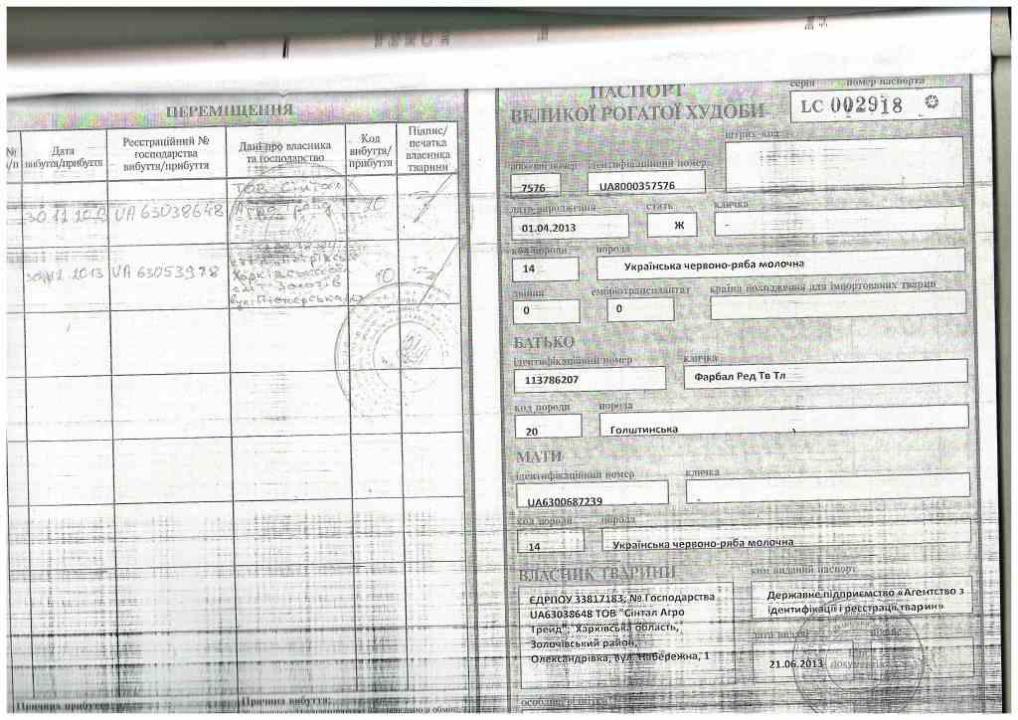 ПЕРЕМІЩЕННЯ
№ п/п
Дата вибуття/прибуття
Реєстраційний № господарства вибуття/прибуття
Дані про власника та господарство
Код вибуття/прибуття
Підпис/печатка власника тварини
UA 63038648
ТОВ Сінтал
Агро Трейд
10
2013
UA 63053978
Харківська
смт. Золочів
вул. Піонерська
10
Причина вибуття:
серія номер паспорта
ПАСПОРТ
ВЕЛИКОЇ РОГАТОЇ ХУДОБИ
LC 002918
штрих-код
робочий номер
ідентифікаційний номер
7576
UA8000357576
дата народження
стать
кличка
01.04.2013
Ж
-
код породи
порода
14
Українська червоно-ряба молочна
двійня
ембріотрансплантат
країна походження для імпортованих тварин
0
0
БАТЬКО
ідентифікаційний номер
кличка
113786207
Фарбал Ред Тв Тл
код породи
порода
20
Голштинська
МАТИ
ідентифікаційний номер
кличка
UA6300687239
-
код породи
порода
14
Українська червоно-ряба молочна
ВЛАСНИК ТВАРИНИ
ким виданий паспорт
ЄДРПОУ 33817183; № Господарства
UA63038648 ТОВ "Сінтал Агро
Трейд"; Харківська область,
Золочівський район,
Олександрівка, вул. Набережна, 1
Державне підприємство «Агентство з
ідентифікації і реєстрації тварин»
дата видачі
21.06.2013